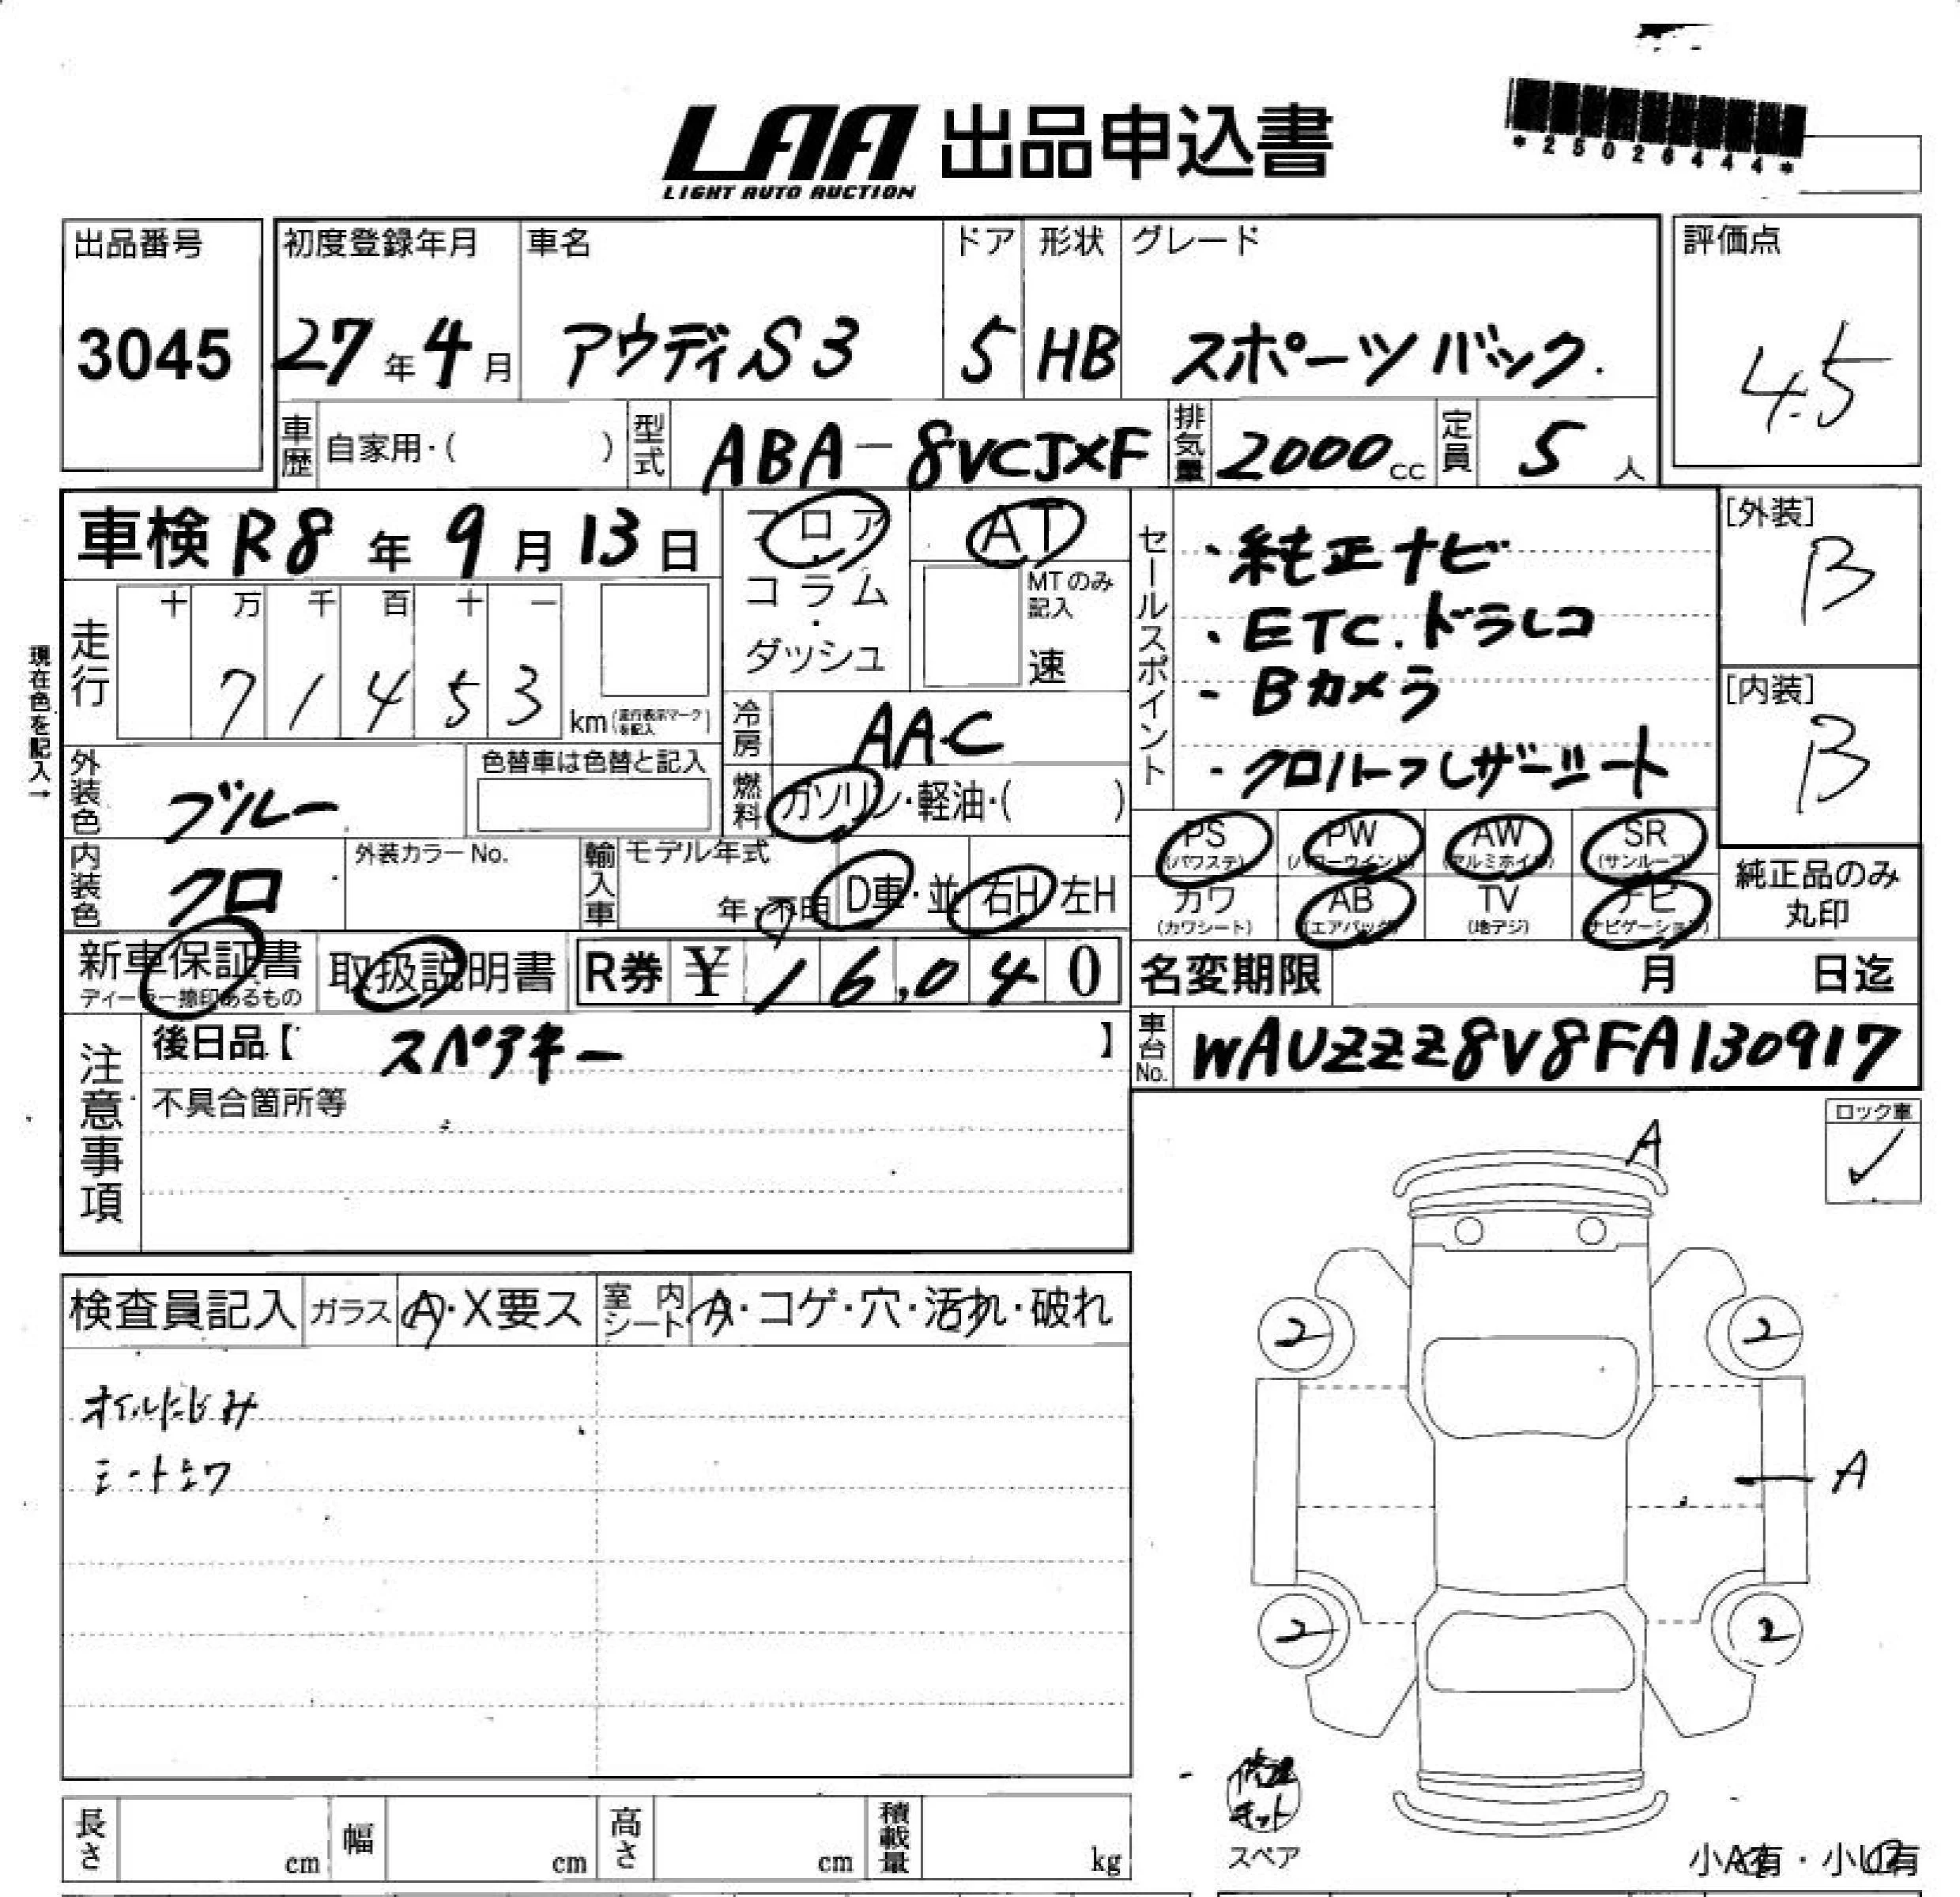 LAA 出品申込書
LIGHT AUTO AUCTION
*25026444*
出品番号 初度登録年月 車名 ドア 形状 グレード 評価点
3045 27年4月 アウディS3 5 HB スポーツバック. 4.5
車歴 自家用・( ) 型式 ABA-8VCJXF 排気量 2000cc 定員 5人
車検 R8年9月13日 フロア・コラム・ダッシュ AT MTのみ記入 速
セールスポイント
・純正ナビ
・ETC.ドラレコ
-Bカメラ
-クロハーフレザーシート
[外装] B
[内装] B
現在色を記入→
走行 十 万 千 百 十 一
71453 km(走行表示マークを記入)
冷房 AAC
外装色 ブルー 色替車は色替と記入
燃料 ガソリン・軽油・( )
内装色 クロ 外装カラーNo. 輸入車 モデル年式 年・不明 D車・並 右H 左H
PS(パワステ) PW(パワーウインド) AW(アルミホイル) SR(サンルーフ)
カワ(カワシート) AB(エアバッグ) TV(地デジ) ナビ(ナビゲーション)
純正品のみ丸印
新車保証書 ディーラー捺印あるもの 取扱説明書 R券 ¥16,040 名変期限 月 日迄
注意事項 後日品【 スペアキー 】
車台No. WAUZZZ8V8FA130917
不具合箇所等
ロック車 ✓
A
検査員記入 ガラス A・X要ス 室内シート A・コゲ・穴・汚れ・破れ
2 2
オイルにじみ
シートシワ
A
2 2
修理キット
スペア
長さ cm 幅 cm 高さ cm 積載量 kg
小A有・小U有